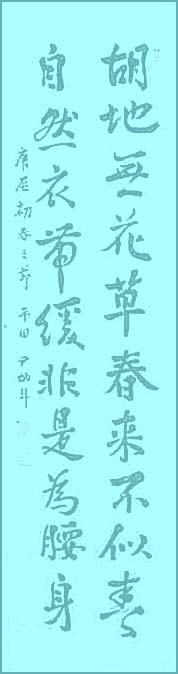 胡地無花草春来不似春
自然衣帶緩非是為腰身
庚辰初春之節 平田 尹